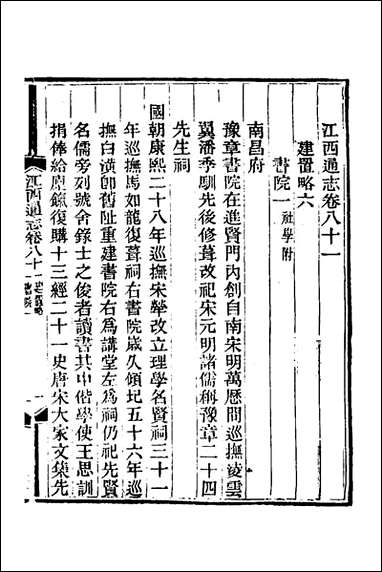 江西通志卷八十一
建置略六
書院一 社學附
南昌府
豫章書院在進賢門內創自南宋明萬歷間巡撫淩雲
翼潘季馴先後修葺改祀宋元明諸儒稱豫章二十四
先生祠
國朝康熙二十八年巡撫宋犖改立理學名賢祠三十一
年巡撫馬如龍復葺祠右書院歲久傾圮五十六年巡
撫白潢師舊址重建書院右爲講堂左爲祠仍祀先賢
名儒旁列號舍錄士之俊者讀書其中偕學使王思訓
捐俸給廩餼復購十三經二十一史唐宋大家文集先
江西通志卷八十一 建置略 書院一 一